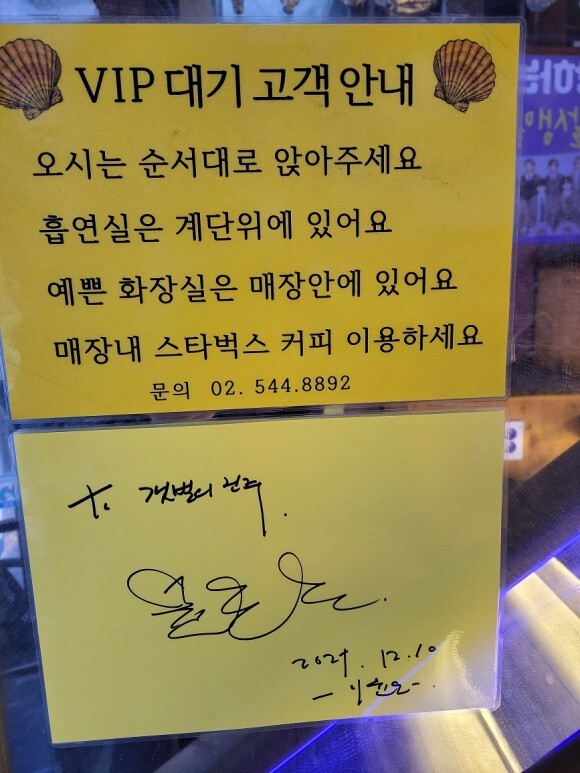 VIP 대기 고객 안내
오시는 순서대로 앉아주세요
흡연실은 계단위에 있어요
예쁜 화장실은 매장안에 있어요
매장내 스타벅스 커피 이용하세요
문의 02. 544.8892
To 갯벌의 진주.
12.10